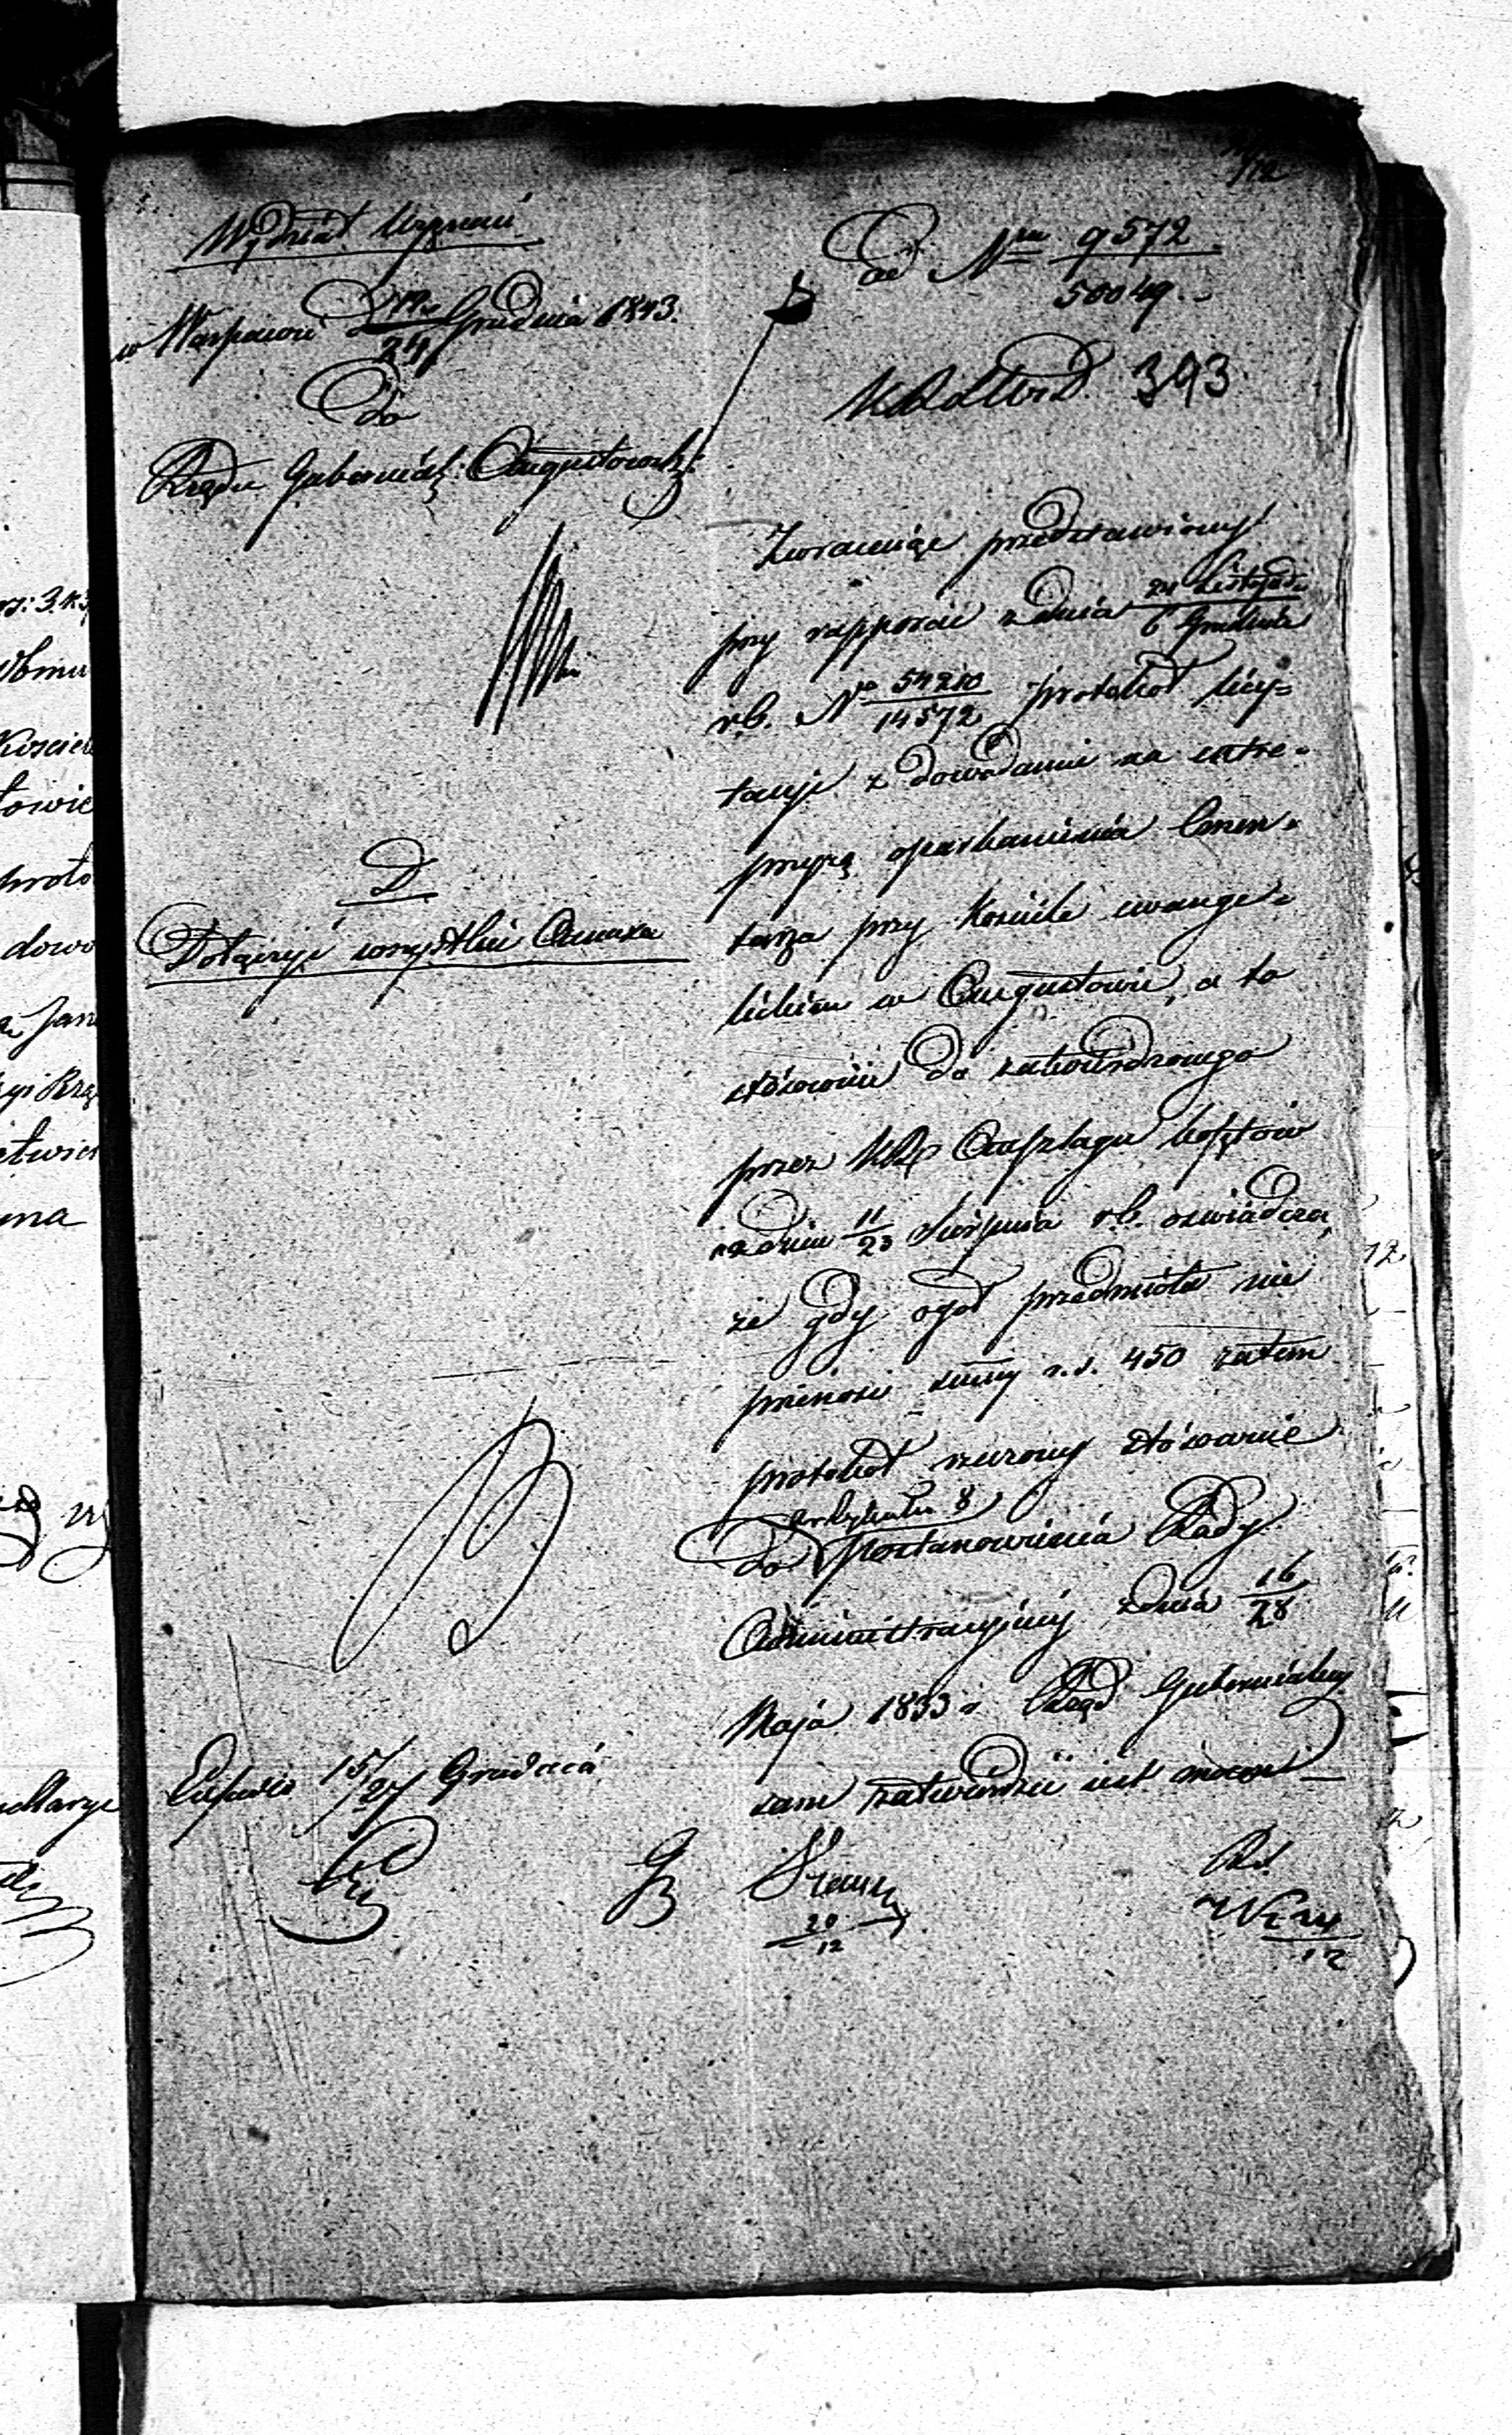 Wydział Wyznań
w Warszawie D 12/24 Grudnia 1843.
Do
Rządu Gubernial: Augustowsk:
D
Dołączyć wszystkie Annexa
ad Nru 9572
50049.
393
Zwracając przedstawiony
przy rapporcie z dnia 24 Listopada / 6 Grudnia
r.b. No 54210/14572 protokół licy=
tacyi z dowodami na entre=
pryzą oparkanienia Cmen=
tarza przy Kościele ewange=
lickim w Augustowie, a to
stósownie do zatwierdzonego
przez KR Anszlagu kosztów
w dniu 11/23 Sierpnia r.b. oświadcza,
że gdy ogół przedmiotu nie
przenosi summy r.s. 450 zatem
protokół rzeczony stósownie
artykułu 8
do Postanowienia Rady
Administracyjnej z dnia 16/28
Maja 1833 r. Rząd Gubernialny
sam zatwierdzić jest mocen
Exped 15/27 Grudnia
20/12
24/12